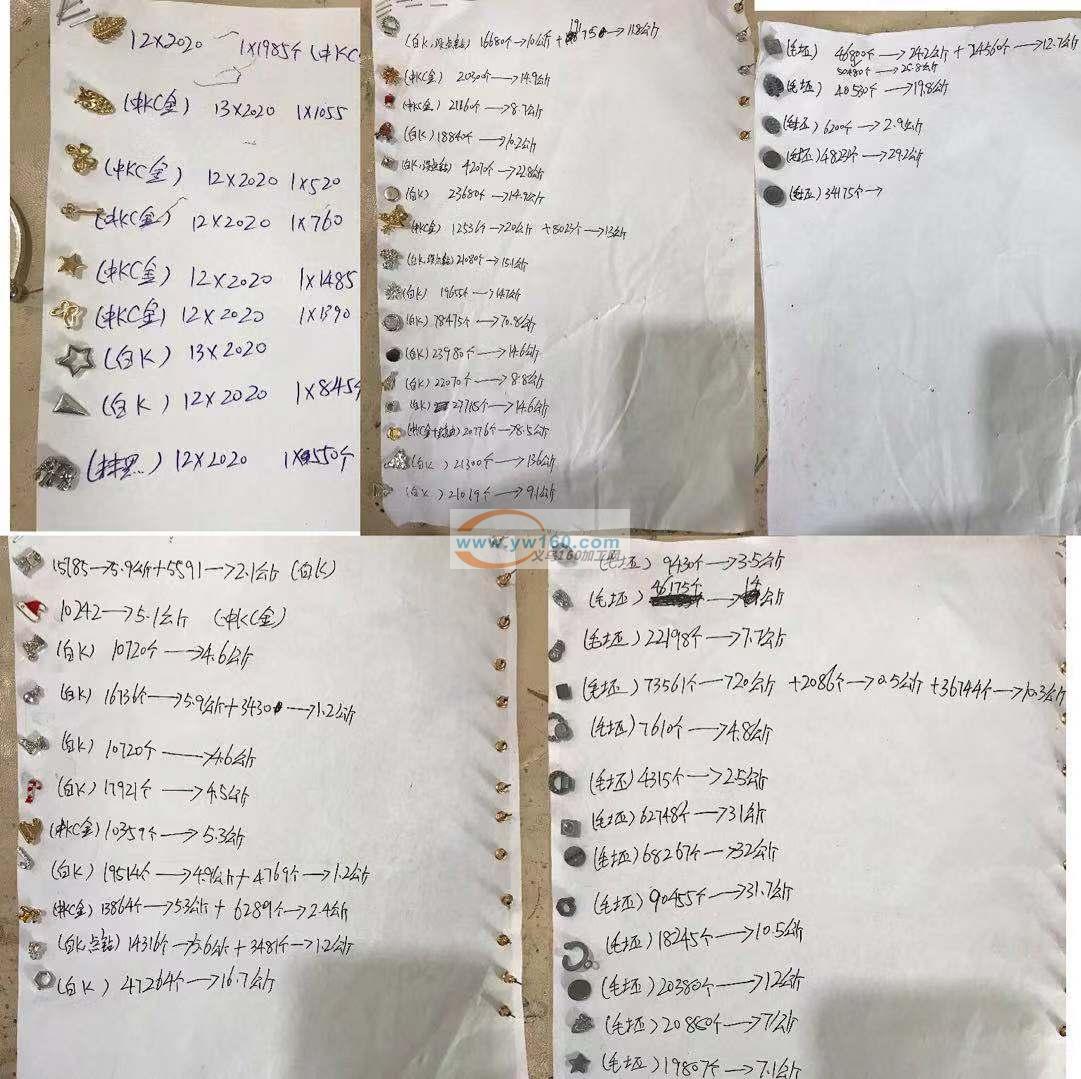 12×2020 1×1985个(中KC
(中KC金) 13×2020 1×1055
(中KC金) 12×2020 1×520
(中KC金) 12×2020 1×760
(中KC金) 12×2020 1×1485
(中KC金) 12×2020 1×1390
(白K) 13×2020
(白K) 12×2020 1×845个
12×2020 1×550个
(白K, 16680个→10公斤+ →11.8公斤
(中KC金) 20300个→14.9公斤
(中KC金) 21160个→8.7公斤
(白K) 18840个→10.2公斤
(白K, 42070个→22.8公斤
(白K) 23680个→14.9公斤
(中KC金) 12536个→20公斤+8023个→13公斤
(白K, 21080个→15.1公斤
(白K) 19655个→14.7公斤
(白K) 78475个→70.8公斤
(白K) 23980个→14.6公斤
(白K) 22070个→8.8公斤
(白K) 27715个→14.6公斤
20776个→8.5公斤
(白K) 21300个→13.6公斤
(白K) 21019个→9.1公斤
(毛坯) 46800个→24.2公斤+24560个→12.7公斤
50480个→25.8公斤
(毛坯) 40530个→19.8公斤
(毛坯) 6200个→2.9公斤
(毛坯) 48232个→29.2公斤
(毛坯) 34175个→
www.yw160.com
义乌160加工网
15185→5.9公斤+5591→2.1公斤 (白K)
10242→5.1公斤 (中KC金)
(白K) 10720个→4.6公斤
(白K) 16736个→5.9公斤+3430→1.2公斤
(白K) 10720个→4.6公斤
(白K) 17921个→4.5公斤
(中KC金) 10359个→5.3公斤
(白K) 19514个→4.9公斤+4769个→1.2公斤
(中KC金) 13864个→5.3公斤+6289个→2.4公斤
(白K,点钻) 14316个→5.6公斤+3481个→1.2公斤
(白K) 47264个→16.7公斤
(毛坯) 9430个→3.5公斤
(毛坯) 46175个→ 公斤
(毛坯) 22198个→7.7公斤
(毛坯) 73561个→20公斤+2086个→0.5公斤+36744个→10.3公斤
(毛坯) 7610个→4.8公斤
(毛坯) 4315个→2.5公斤
(毛坯) 62748个→31公斤
(毛坯) 68267个→32公斤
(毛坯) 90455个→31.7公斤
(毛坯) 18245个→10.5公斤
(毛坯) 20380个→12公斤
(毛坯) 20860个→7公斤
(毛坯) 19807个→7.1公斤